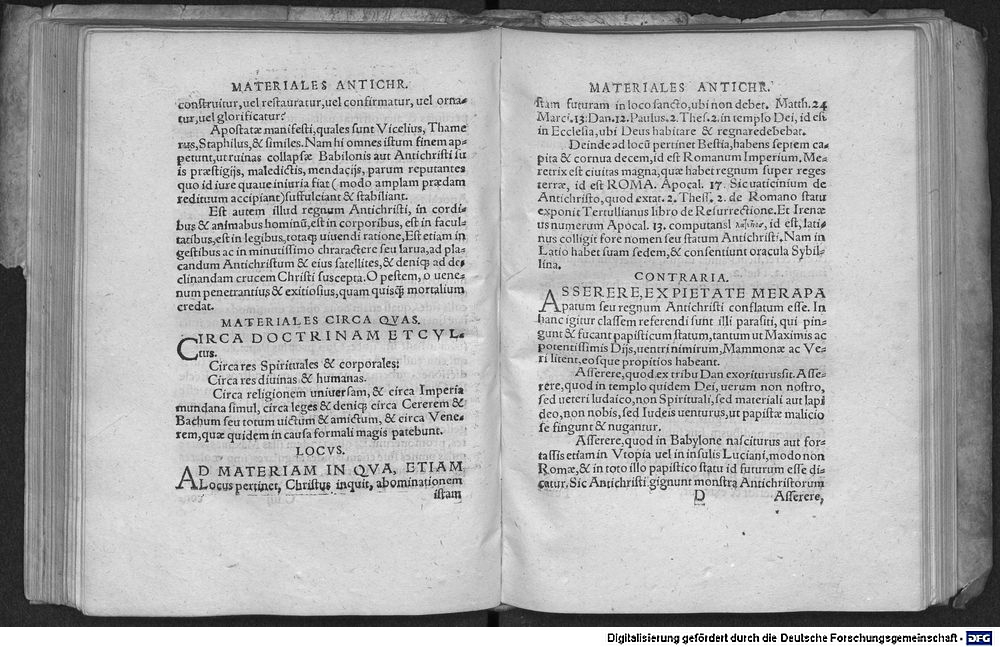 MATERIALES ANTICHR.
construitur, uel restauratur, uel confirmatur, uel orna-
tur, uel glorificatur?
Apostatæ manifesti, quales sunt Vicelius, Thame
rus, Staphilus, & similes. Nam hi omnes istum finem ap-
petunt, ut ruinas collapsæ Babilonis aut Antichristi su
is præstigijs, maledictis, mendacijs, parum reputantes
quo id iure quaue iniuria fiat (modo amplam prædam
redituum accipiant) suffulciant & stabiliant.
Est autem illud regnum Antichristi, in cordi-
bus & animabus hominū, est in corporibus, est in facul-
tatibus, est in legibus, totaq; uiuendi ratione, Est etiam in
gestibus ac in minutissimo chraractere seu larua, ad pla-
candum Antichristum & eius satellites, & deniq; ad de-
clinandam crucem Christi suscepta. O pestem, o uene-
num penetrantius & exitiosius, quam quisq̃ mortalium
credat.
MATERIALES CIRCA QVAS.
CIRCA DOCTRINAM ET CVL-
tus.
Circa res Spirituales & corporales:
Circa res diuinas & humanas.
Circa religionem uniuersam, & circa Imperia
mundana simul, circa leges & deniq; circa Cererem &
Bachum seu totum uictum & amictum, & circa Vene-
rem, quæ quidem in causa formali magis patebunt.
LOCVS.
AD MATERIAM IN QVA, ETIAM
Locus pertinet, Christus inquit, abominationem
istam
MATERIALES ANTICHR.
stam futuram in loco sancto, ubi non debet. Matth. 24
Marci. 13. Dan. 12. Paulus. 2. Thes. 2. in templo Dei, id est
in Ecclesia, ubi Deus habitare & regnare debebat.
Deinde ad locū pertinet Bestia, habens septem ca-
pita & cornua decem, id est Romanum Imperium, Me-
retrix est ciuitas magna, quæ habet regnum super reges
terræ, id est ROMA. Apocal. 17. Sic uaticinium de
Antichristo, quod extat. 2. Thess. 2. de Romano statu
exponit Tertullianus libro de Resurrectione. Et Irenæ
us numerum Apocal. 13. computans λατεῖνος, id est, lati-
nus colligit fore nomen seu statum Antichristi. Nam in
Latio habet suam sedem, & consentiunt oracula Sybil-
lina.
CONTRARIA.
ASSERERE, EX PIETATE MERA PA
patum seu regnum Antichristi conflatum esse. In
hanc igitur classem referendi sunt illi parasiti, qui pin-
gunt & fucant papisticum statum, tantum ut Maximis ac
potentissimis Dijs, uentri nimirum, Mammonæ ac Ve-
ri litent, eosque propitios habeant.
Asserere, quod ex tribu Dan exoriturus sit. Asse-
rere, quod in templo quidem Dei, uerum non nostro,
sed ueteri Iudaico, non Spirituali, sed materiali aut lapi
deo, non nobis, sed Iudeis uenturus, ut papistæ malicio
se fingunt & nugantur.
Asserere, quod in Babylone nasciturus aut for-
tassis etiam in Vtopia uel in insulis Luciani, modo non
Romæ, & in toto illo papistico statu id futurum esse di-
catur. Sic Antichristi gignunt monstra Antichristorum
D Asserere,
Digitalisierung gefördert durch die Deutsche Forschungsgemeinschaft - DFG